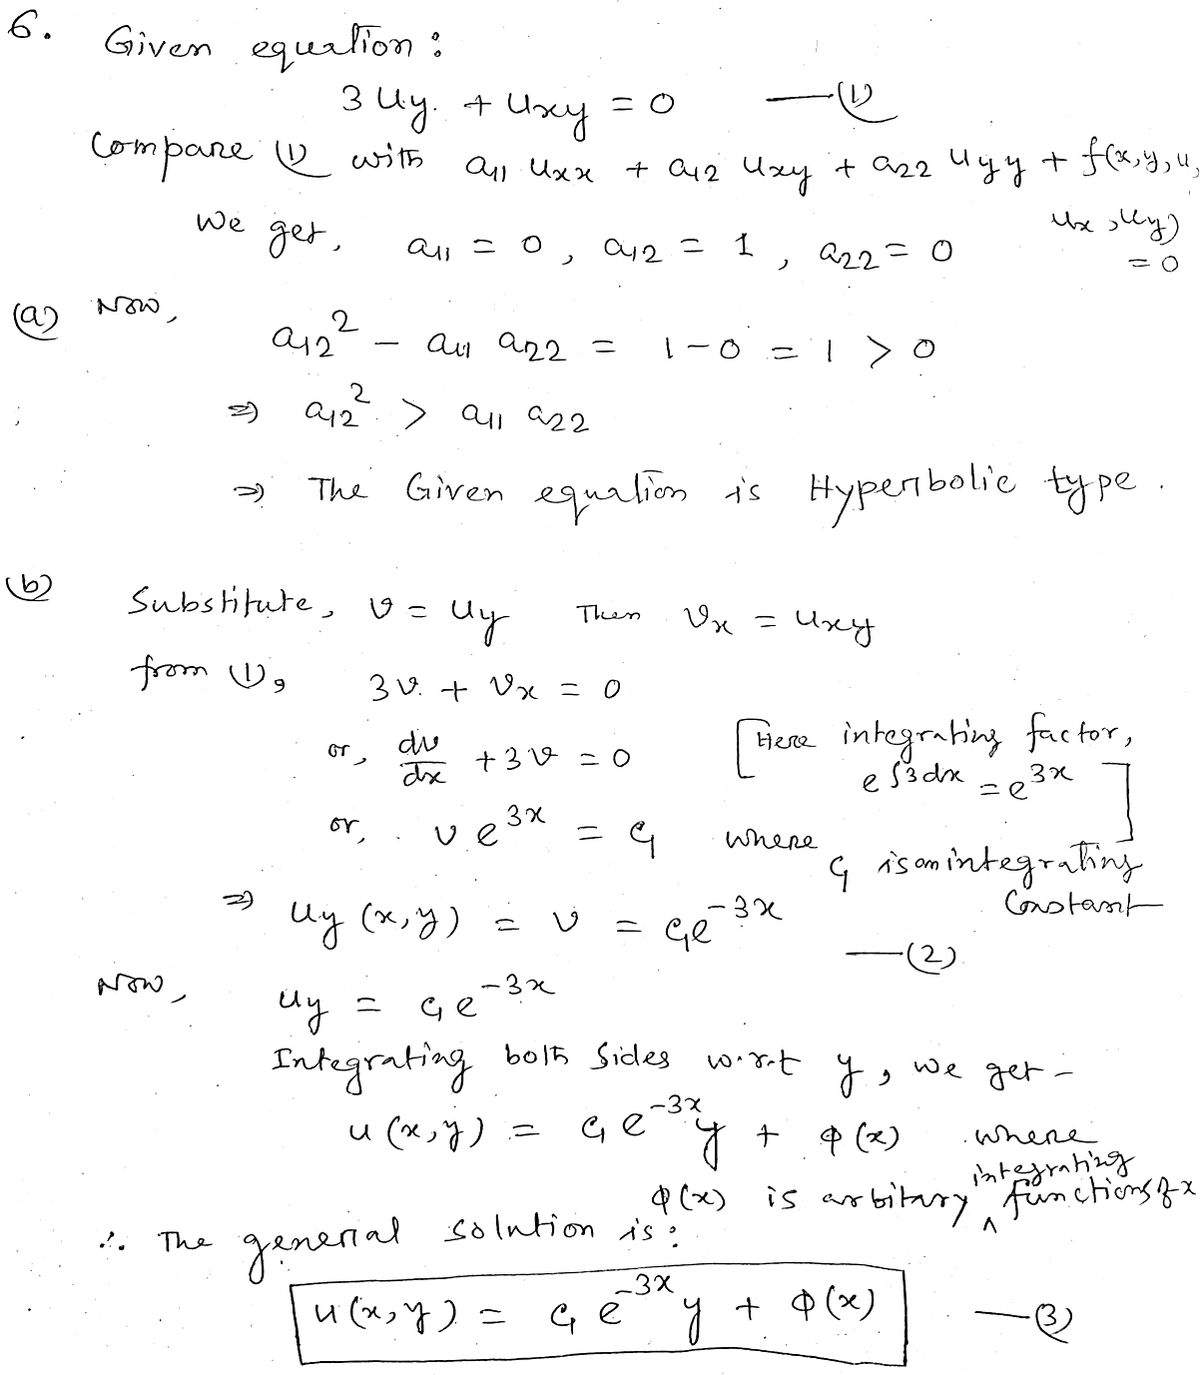 6. Given equation:
3 uy + uxy = 0 —(1)
Compare (1) with a11 uxx + a12 uxy + a22 uyy + f(x,y,u,
ux, uy)
= 0
We get, a11 = 0, a12 = 1, a22 = 0
(a) Now,
a12² - a11 a22 = 1-0 = 1 > 0
⇒ a12² > a11 a22
⇒ The Given equation is Hyperbolic type.
(b) Substitute, v = uy Then vx = uxy
from (1), 3v + vx = 0
or, dv/dx + 3v = 0 [Here integrating factor,
e∫3dx = e³ˣ]
or, v e³ˣ = C1 where
C1 is an integrating
Constant
⇒ uy (x,y) = v = C1e⁻³ˣ —(2)
Now, uy = C1e⁻³ˣ
Integrating both Sides w.r.t y, we get -
u (x,y) = C1 e⁻³ˣ y + φ(x) where
φ(x) is arbitary integrating functions of x
∴ The general solution is:
u(x,y) = C1 e⁻³ˣ y + φ(x) —(3)